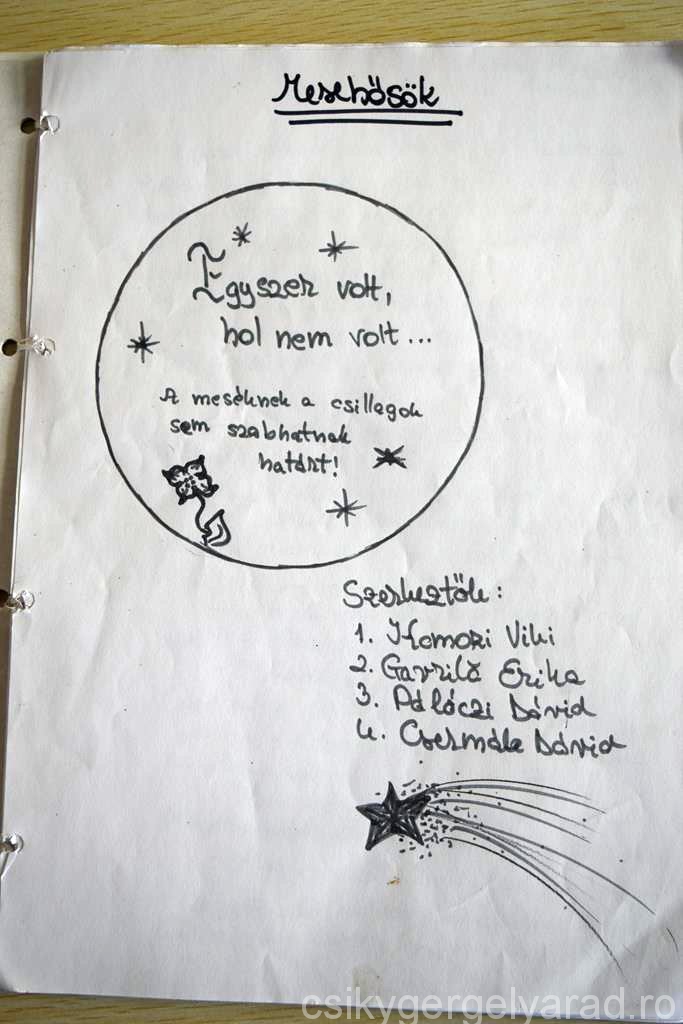 Mesehősök
Egyszer volt,
hol nem volt...
A meséknek a csillagok
sem szabhatnak
határt!
Szerkeztők:
1. Komori Viki
2. Gavrilă Erika
3. Pálóczi Dávid
4. Csermák Dávid
csikygergelyarad.ro